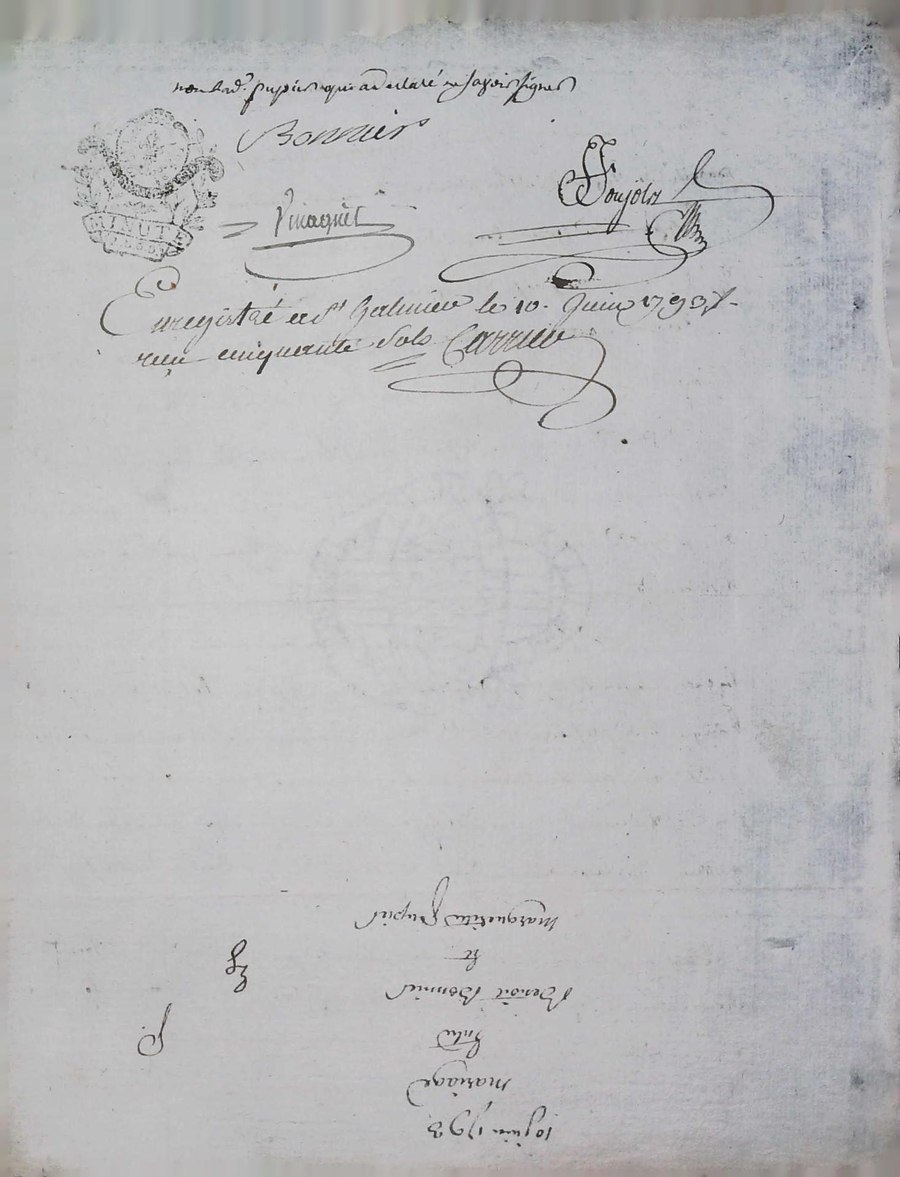 non lad. pupier qui a declaré ne savoir signer
Bonnier
MINUTE
Vinagnet
Enregistré a St Galmier le 10. Juin 1793
recu cinquante Sols Carrier
10 juin 1793
mariage
Entre
Benoit Bonnier
Et
Marguerite Pupier